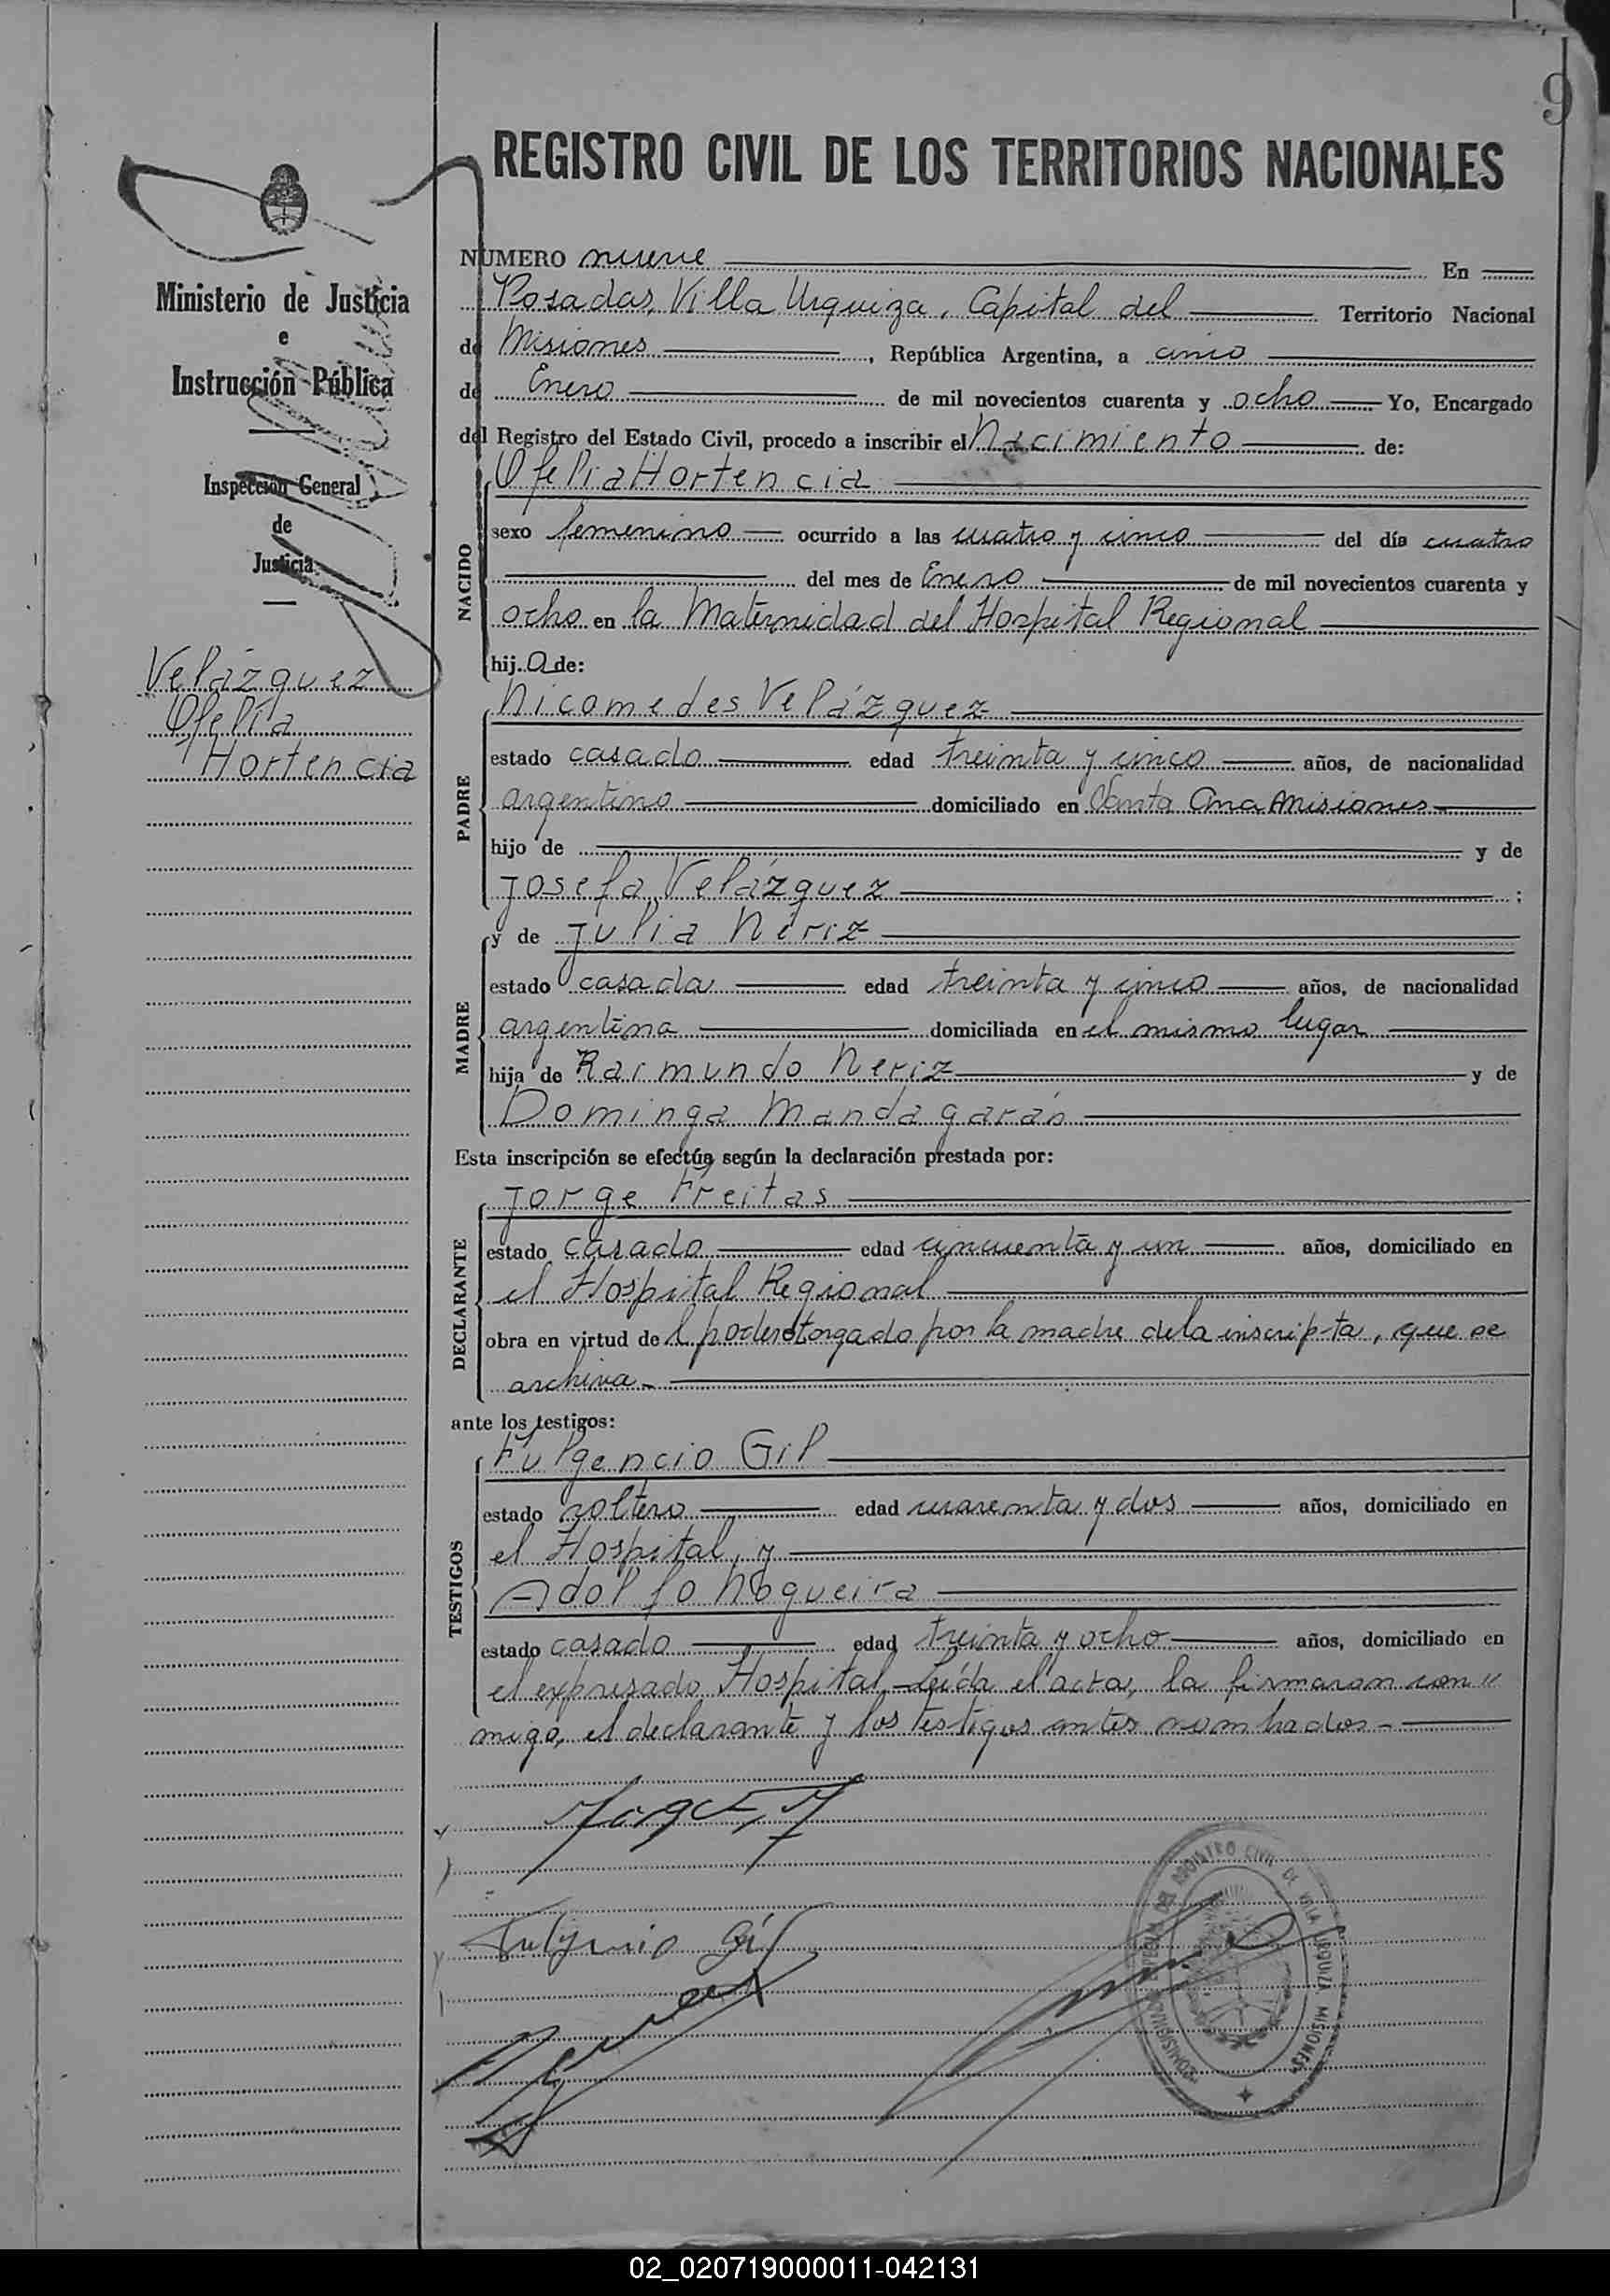 9
REGISTRO CIVIL DE LOS TERRITORIOS NACIONALES
Ministerio de Justicia
e
Instrucción Pública
Inspección General
de
Justicia
Velázquez
Ofelia
Hortencia
NUMERO nueve En
Posadas, Villa Urquiza, Capital del Territorio Nacional
de Misiones, República Argentina, a cinco
de Enero de mil novecientos cuarenta y ocho Yo, Encargado
del Registro del Estado Civil, procedo a inscribir el Nacimiento de:
NACIDO
Ofelia Hortencia
sexo femenino ocurrido a las cuatro y cinco del día cuatro
del mes de Enero de mil novecientos cuarenta y
ocho en la Maternidad del Hospital Regional
hij a de:
PADRE
Nicomedes Velázquez
estado casado edad treinta y cinco años, de nacionalidad
argentino domiciliado en Santa Ana Misiones
hijo de y de
Josefa Velázquez ;
MADRE
y de Julia Neriz
estado casada edad treinta y cinco años, de nacionalidad
argentina domiciliada en el mismo lugar
hija de Raimundo Neriz y de
Dominga Mandagarán
Esta inscripción se efectúa según la declaración prestada por:
DECLARANTE
Jorge Freitas
estado casado edad cincuenta y un años, domiciliado en
el Hospital Regional
obra en virtud de l poder otorgado por la madre de la inscripta, que se
archiva.-
ante los testigos:
TESTIGOS
Fulgencio Gil
estado soltero edad cuarenta y dos años, domiciliado en
el Hospital, y
Adolfo Nogueira
estado casado edad treinta y ocho años, domiciliado en
el expresado Hospital.- Leída el acta, la firmaron con"
migo, el declarante y los testigos antes nombrados.-
Fulgencio Gil
REGISTRO CIVIL DE VILLA URQUIZA MISIONES
02_020719000011-042131